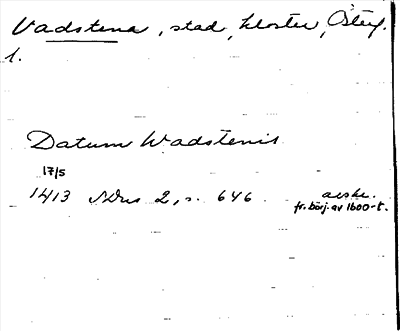 Vadstena, stad, kloster, Östg.
1.
Datum Wadstenis
17/5
1413 SDns 2, s. 646 avskr.
fr. börj. av 1600-t.